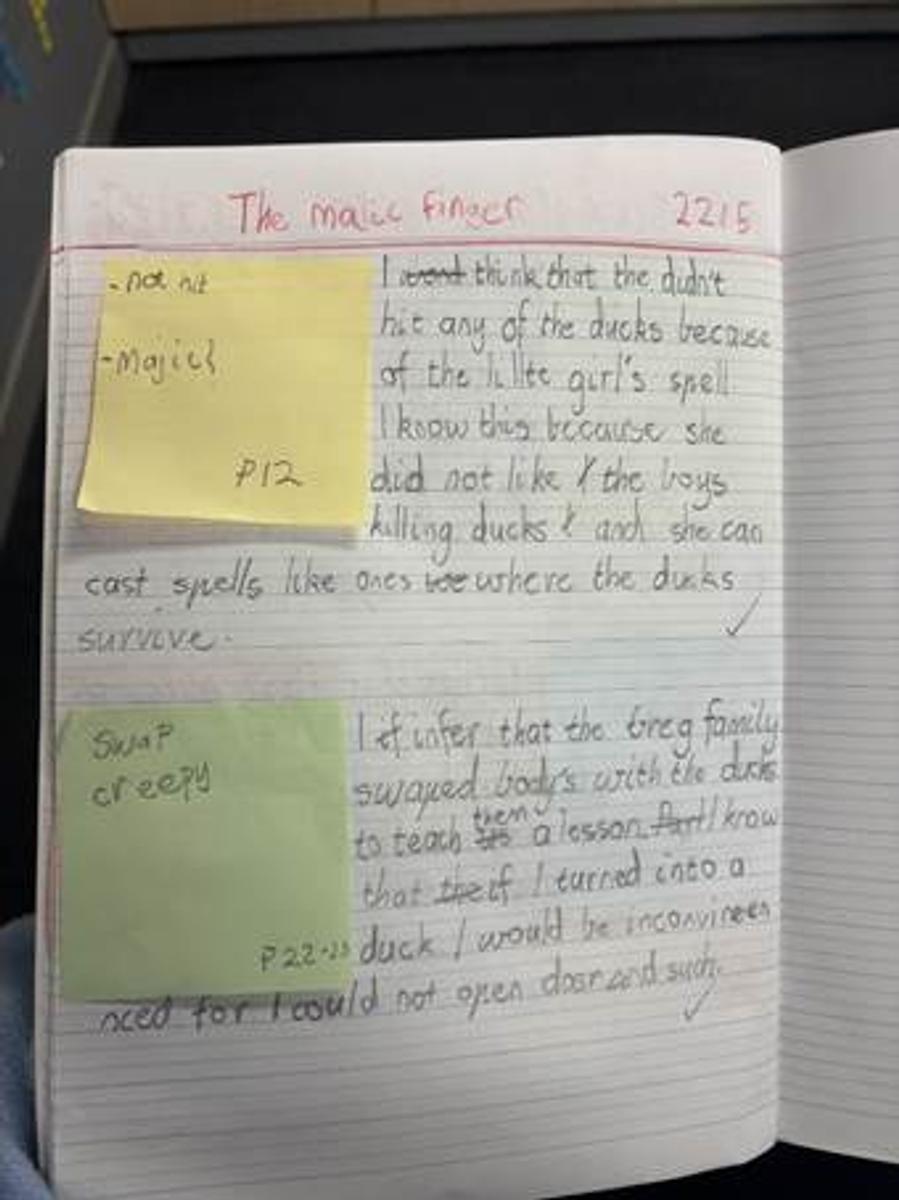 The malic finger 2215
- not hit
- Majic
P12
I think that the didn't
hit any of the ducks because
of the little girl's spell
I know this because she
did not like the boys
killing ducks and she can
cast spells like ones where the ducks
survive.
Swap
creepy
P22-23
I infer that the Greg family
swaped body's with the ducks
to teach them a lesson I know
that if I turned into a
duck I would be inconvinen
nced for I could not open door and such.